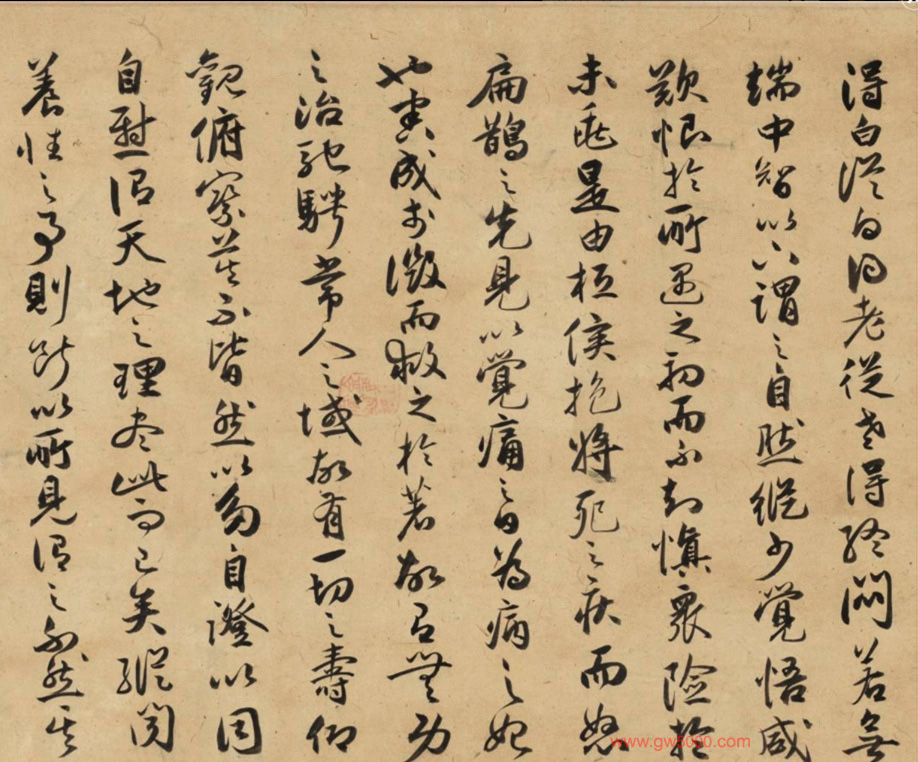 得白從白得老從老得終悶若無
端中智以下謂之自然縱少覺悟咸
歎恨於所遇之初而不知慎眾險於
未兆是由桓侯抱將死之疾而怒
扁鵲之先見以覺痛之日為病之始
也害成於微而救之於著故有無功
之治馳騁常人之域故有一切之壽仰
觀俯察莫不皆然以多自證以同
自慰謂天地之理盡此而已矣縱聞
養性之事則斷以所見謂之不然其
www.gw5000.com